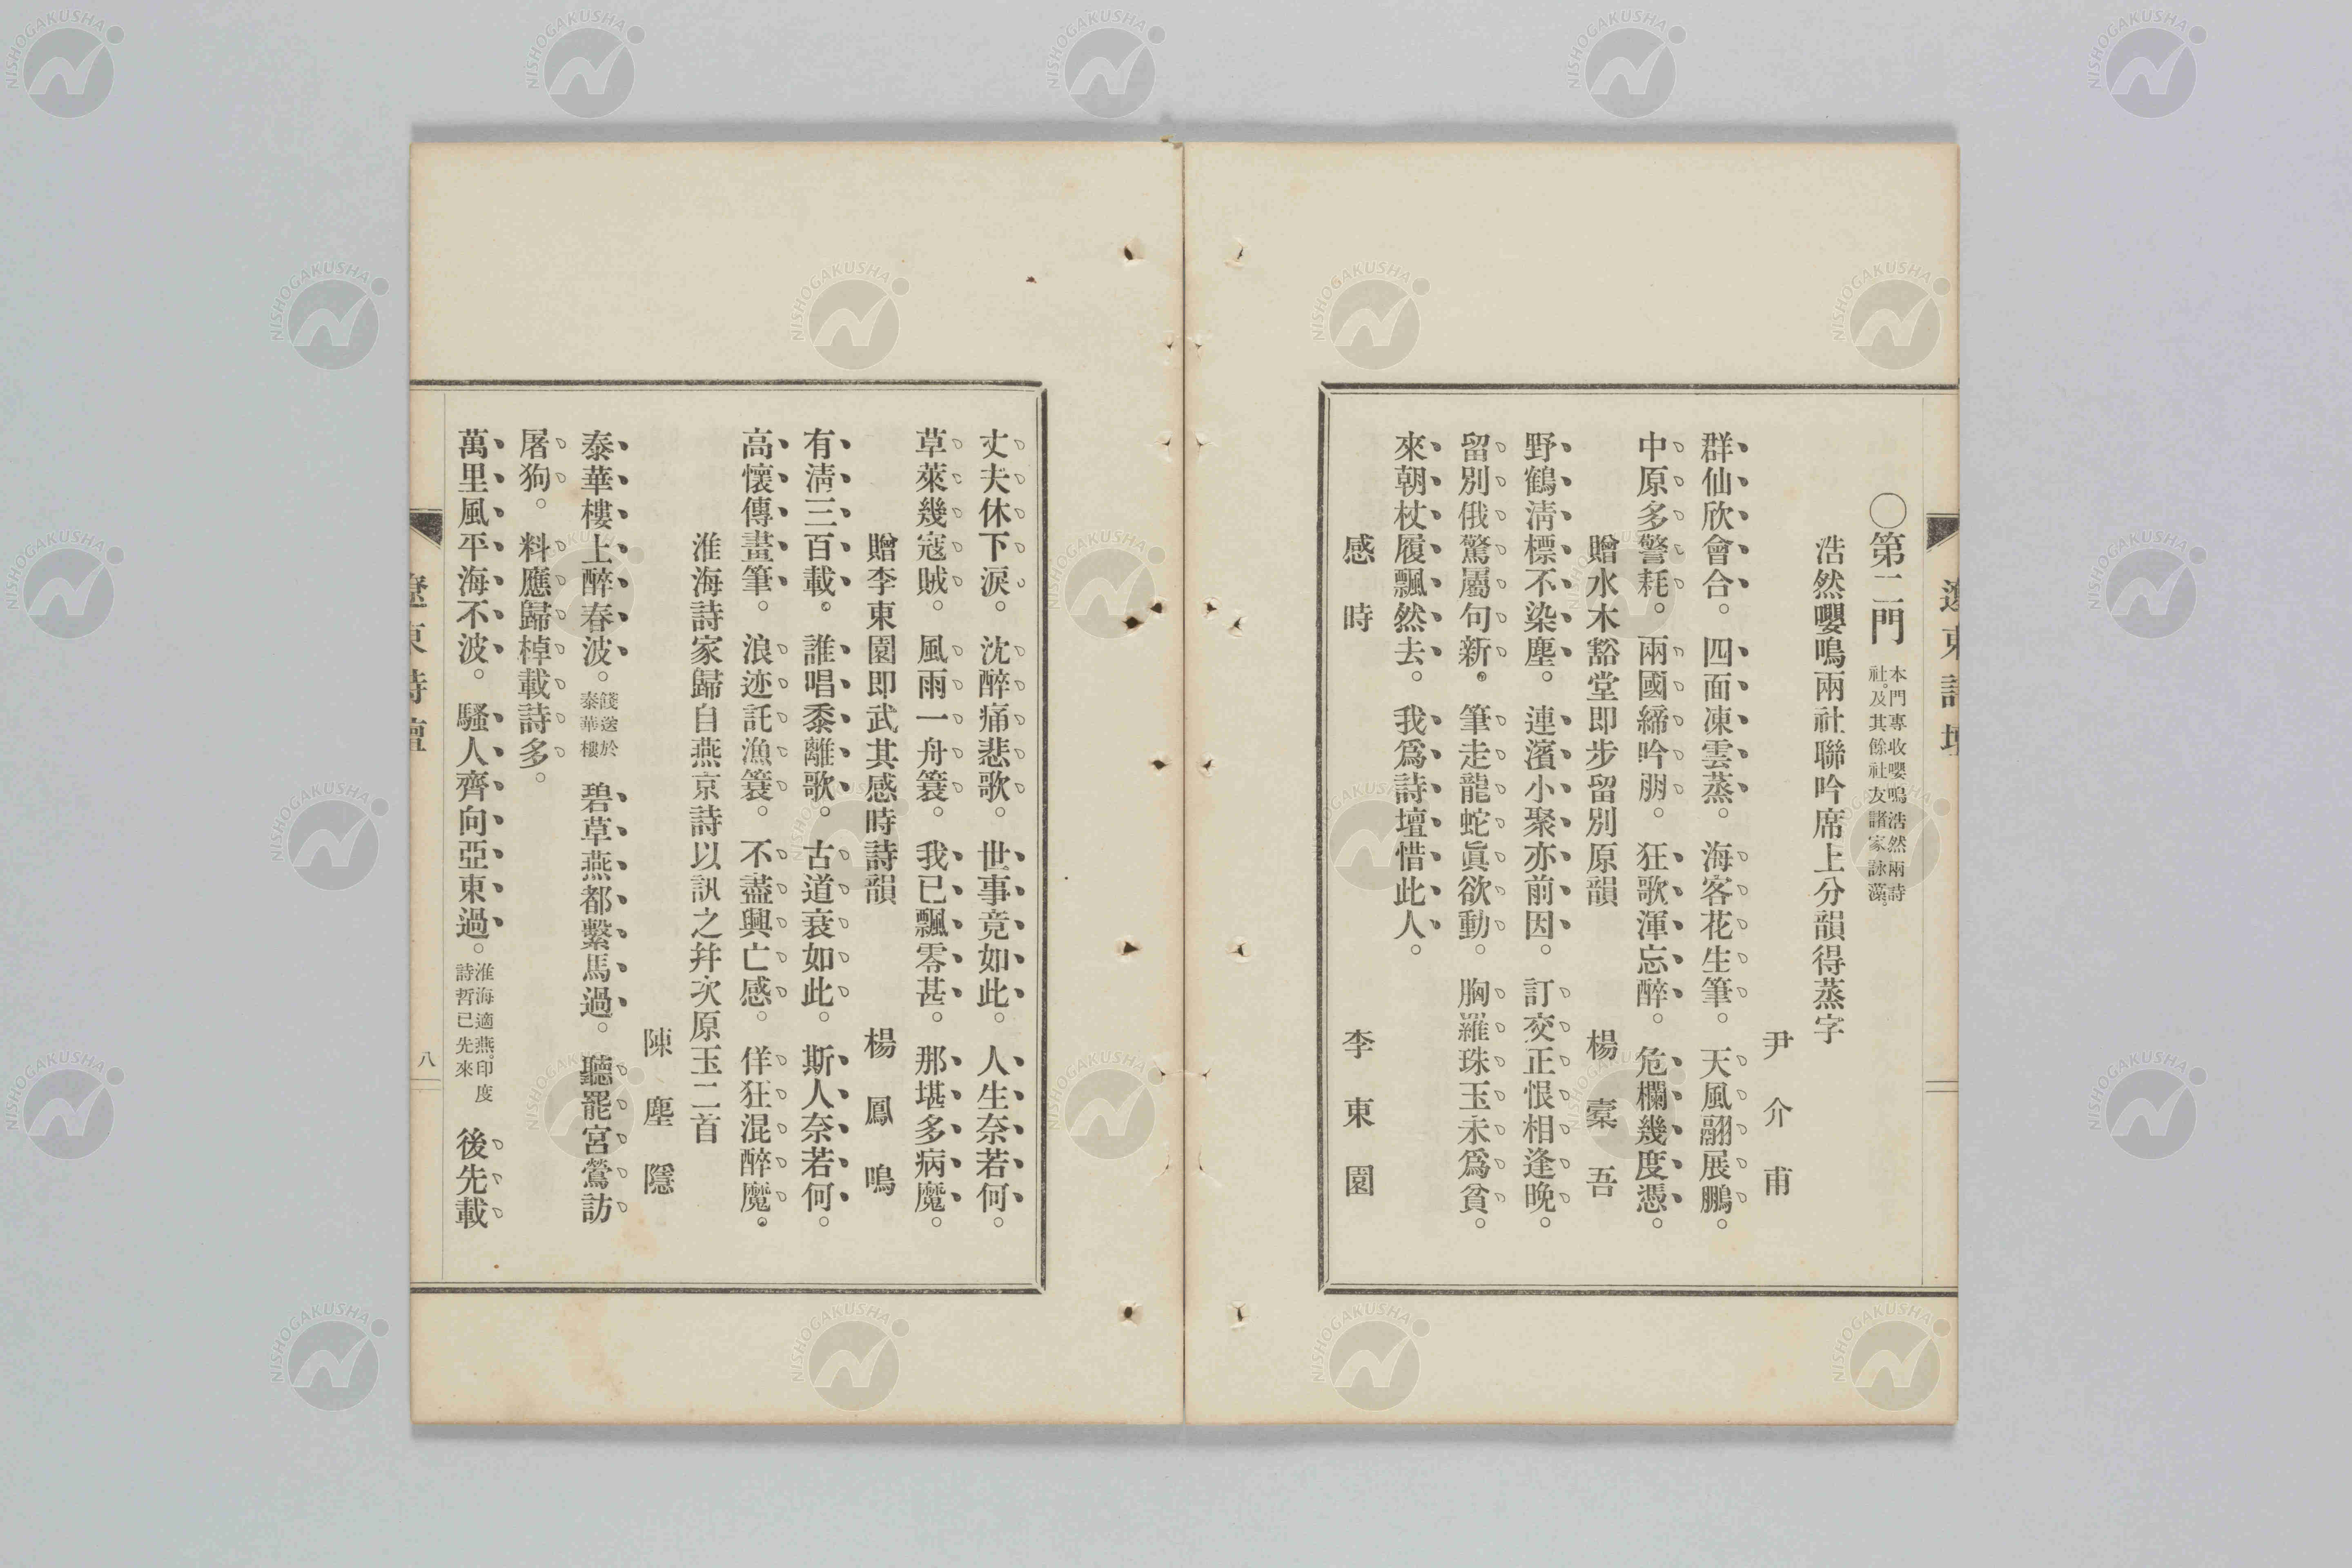 遼東詩壇
〇第二門 本門專收嚶鳴浩然兩詩
社。及其餘社友諸家詠藻。
浩然嚶鳴兩社聯吟席上分韻得蒸字
尹介甫
群仙欣會合。四面凍雲蒸。海客花生筆。天風翮展鵬。
中原多警耗。兩國締吟朋。狂歌渾忘醉。危欄幾度憑。
贈水木豁堂即步留別原韻 楊槖吾
野鶴淸標不染塵。連濱小聚亦前因。訂交正恨相逢晩。
留別俄驚屬句新。筆走龍蛇眞欲動。胸羅珠玉未爲貧。
來朝杖履飄然去。我爲詩壇惜此人。
感時 李東園
丈夫休下淚。沈醉痛悲歌。世事竟如此。人生奈若何。
草萊幾寇賊。風雨一舟簑。我已飄零甚。那堪多病魔。
贈李東園即武其感時詩韻 楊鳳鳴
有淸三百載。誰唱黍離歌。古道衰如此。斯人奈若何。
高懷傳畫筆。浪迹託漁簑。不盡興亡感。佯狂混醉魔。
淮海詩家歸自燕京詩以訊之幷次原玉二首
陳塵隱
泰華樓上醉春波。餞送於
泰華樓 碧草燕都繫馬過。聽罷宮鶯訪
屠狗。料應歸棹載詩多。
萬里風平海不波。騷人齊向亞東過。淮海適燕。印度
詩哲已先來 後先載
遼東詩壇 八
NISHOGAKUSHA